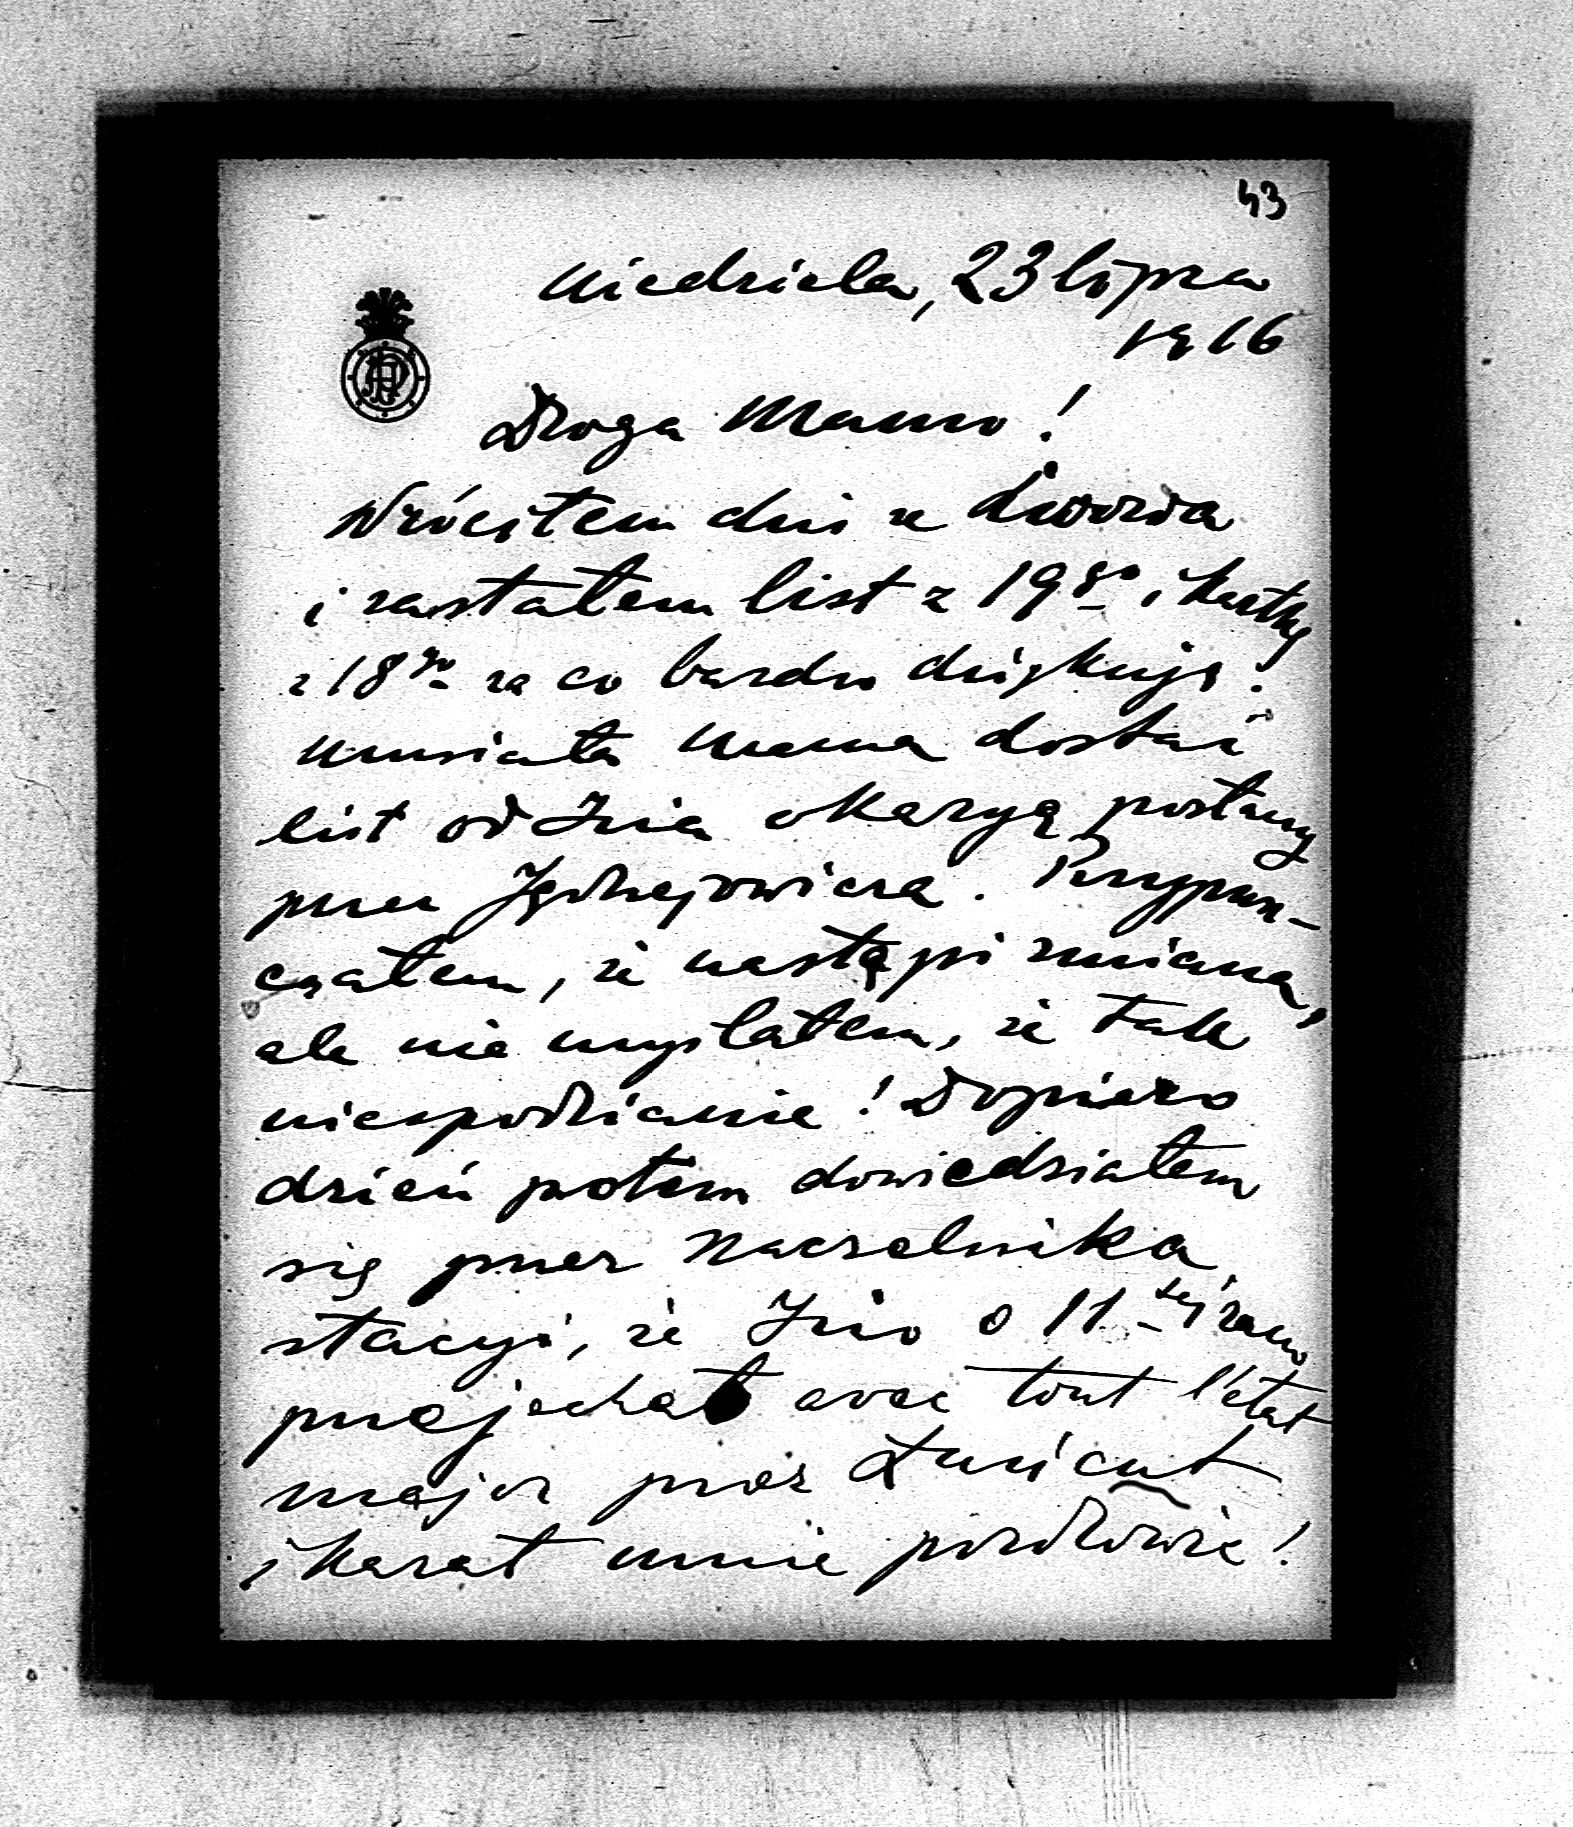 43
Niedziela, 23 lipca
1916
Droga Mamo!
Wróciłem dziś ze Lwowa
i zastałem list z 19go i kartkę
z 18go za co bardzo dziękuję!
Musiała Mama dostać
list od Inia okazyą posłany
przez Jędrzejowicza. Przypusz-
czałem, że nastąpi zmiana,
ale nie myślałem, że tak
niespodzianie! Dopiero
dzień potem dowiedziałem
się przez Naczelnika
stacyi, że Inio o 11-tej rano
przejechał avec tout l'état
major przez Łańcut
i kazał mnie pozdrowić!